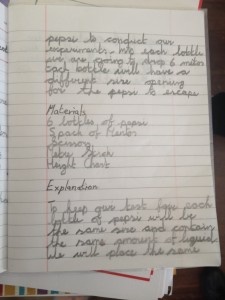 pepsi to conduct our
experiments. Into each bottle
we are going to drop 6 mentos
each bottle will have a
different size opening
for the pepsi to escape
Materials
6 bottles of pepsi
5 pack of Mentos
Scissors
Height Chart
Explanation
To keep our test fair each
bottle of pepsi will be
the same size and contain
the same amount of liquid
We will place the same